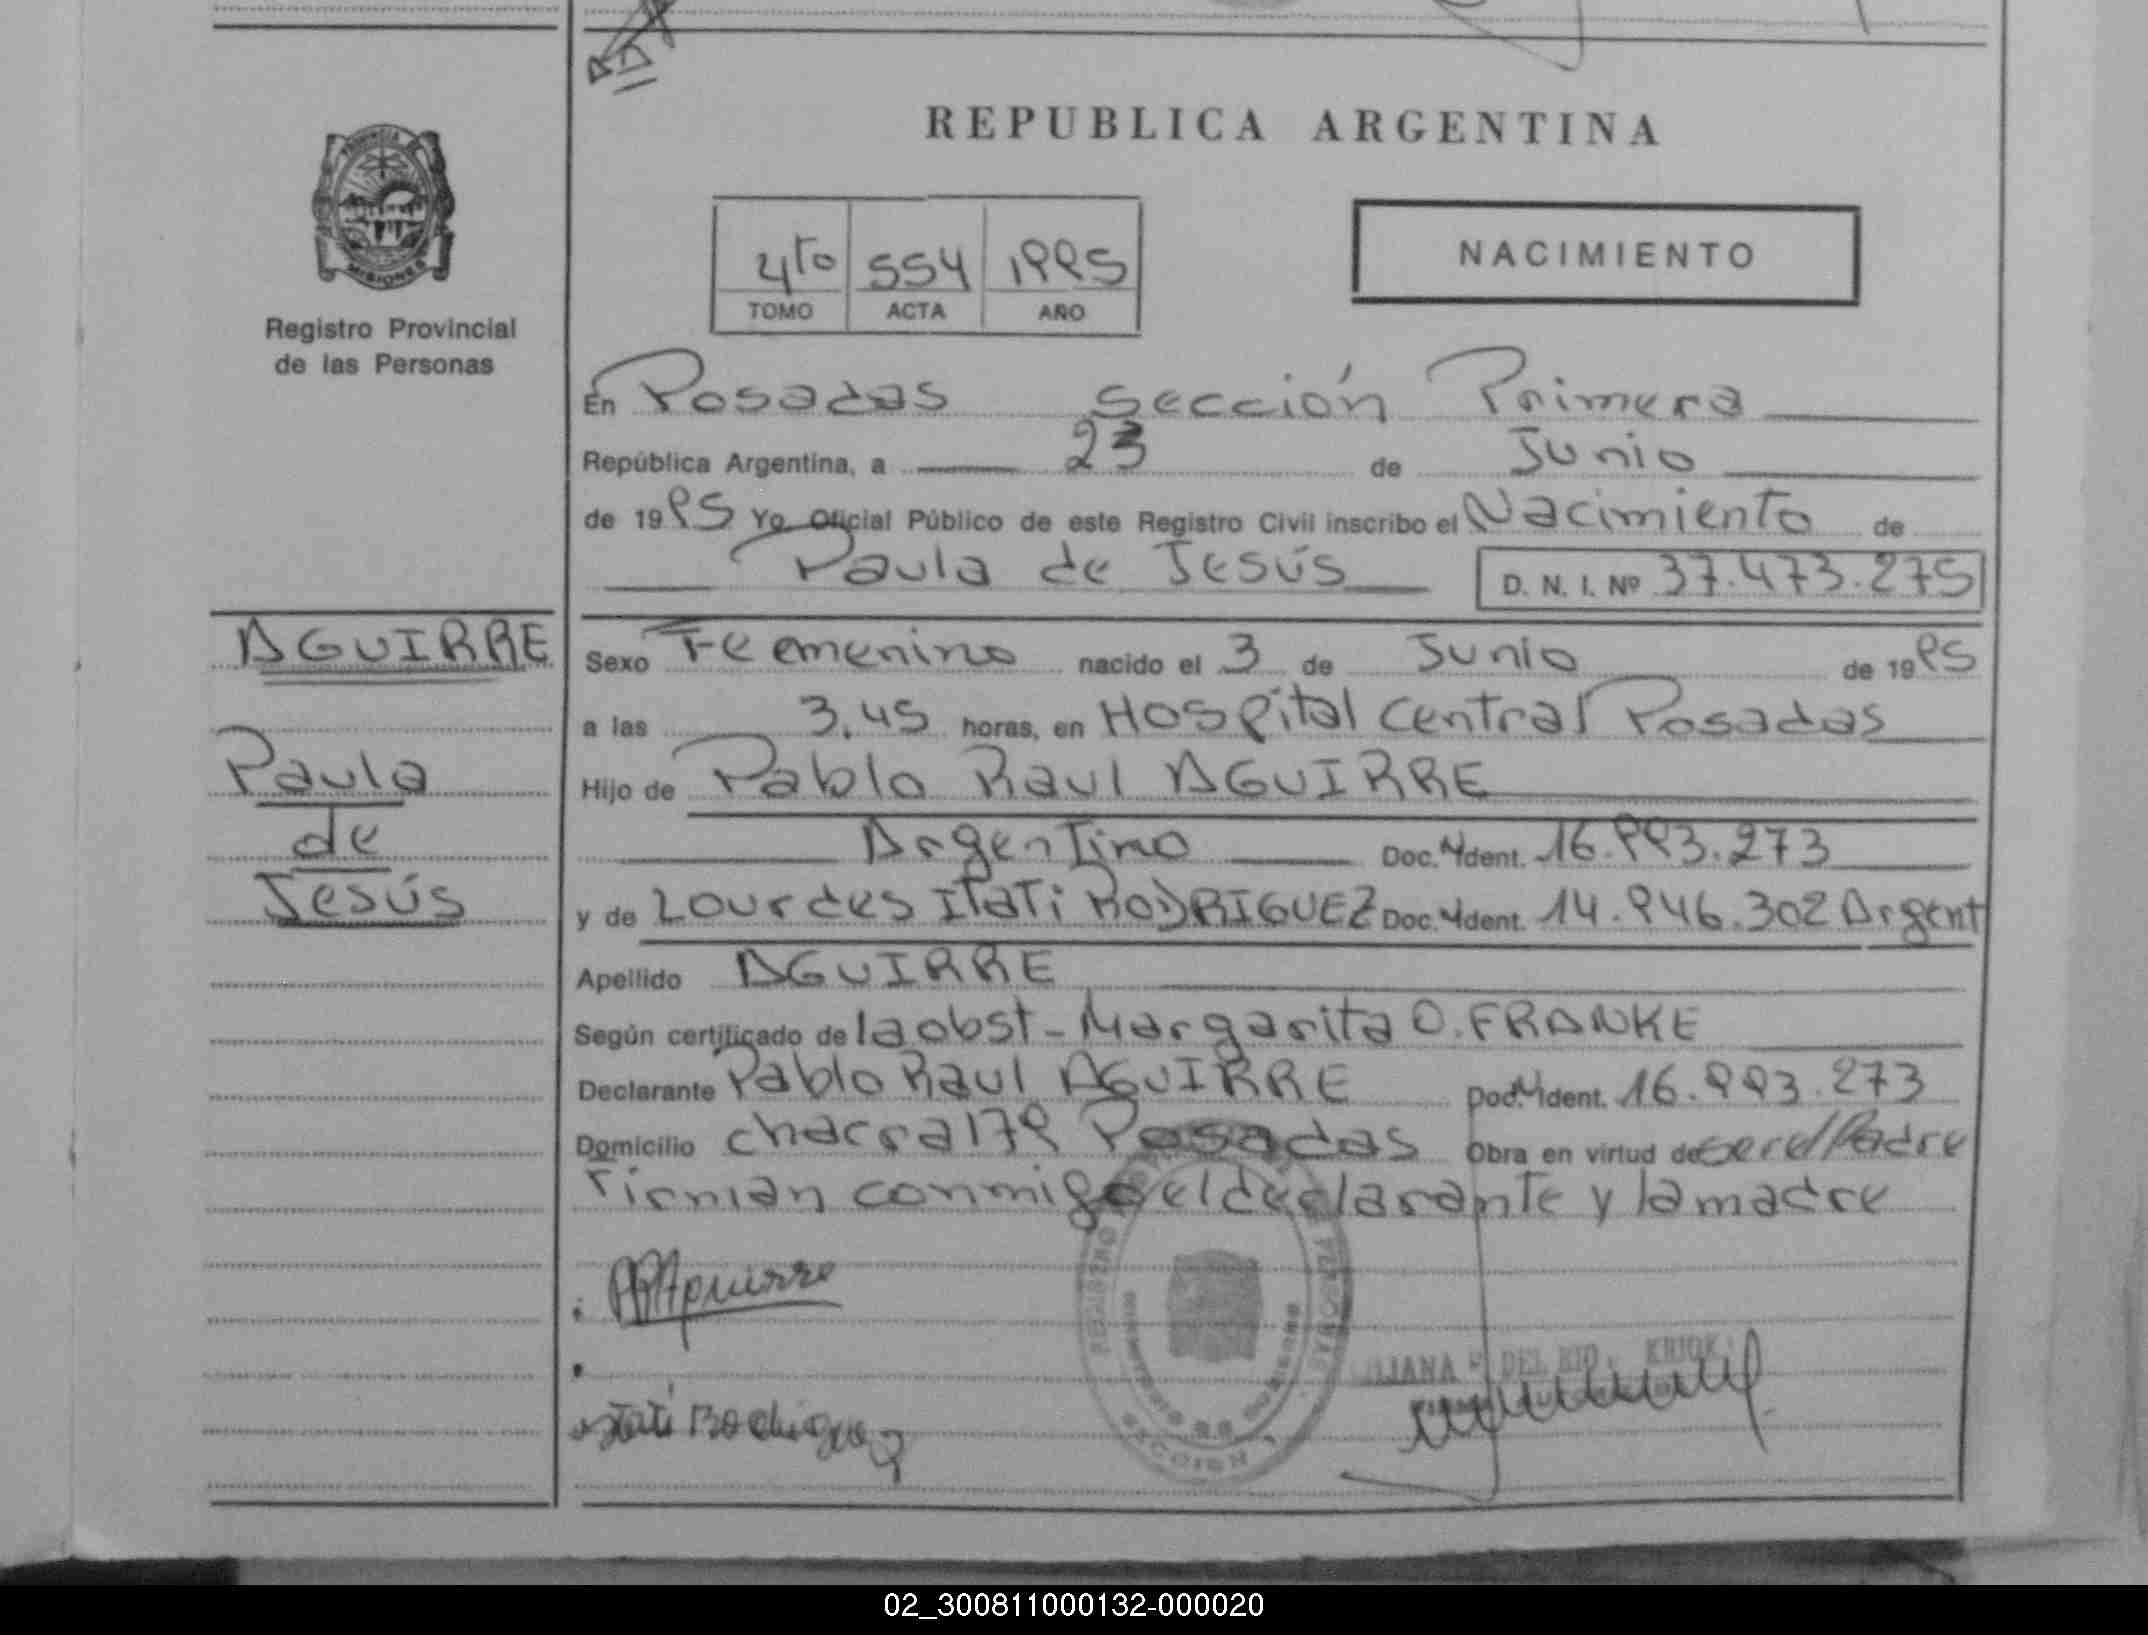 REPUBLICA ARGENTINA
PROVINCIA DE
MISIONES
Registro Provincial
de las Personas
4to 554 1995
TOMO ACTA AÑO
NACIMIENTO
En Posadas Sección Primera
República Argentina, a 23 de Junio
de 1995 Yo Oficial Público de este Registro Civil inscribo el Nacimiento de
Paula de Jesús D. N. I. Nº 37.473.275
AGUIRRE
Paula
de
Jesús
Sexo Femenino nacido el 3 de Junio de 1995
a las 3.45 horas, en Hospital Central Posadas
Hijo de Pablo Raul AGUIRRE
Argentino Doc. Ident. 16.993.273
y de Lourdes Itati RODRIGUEZ Doc. Ident. 14.946.302 Argent
Apellido AGUIRRE
Según certificado de la obst- Margarita O. FRANKE
Declarante Pablo Raul AGUIRRE Doc. Ident. 16.993.273
Domicilio chacra 179 Posadas Obra en virtud de ser el Padre
Firman conmigo el declarante y la madre
PRAguirre
REGISTRO PERSONAS
SECCION 1
DEL RIO
Itati Rodriguez
02_300811000132-000020